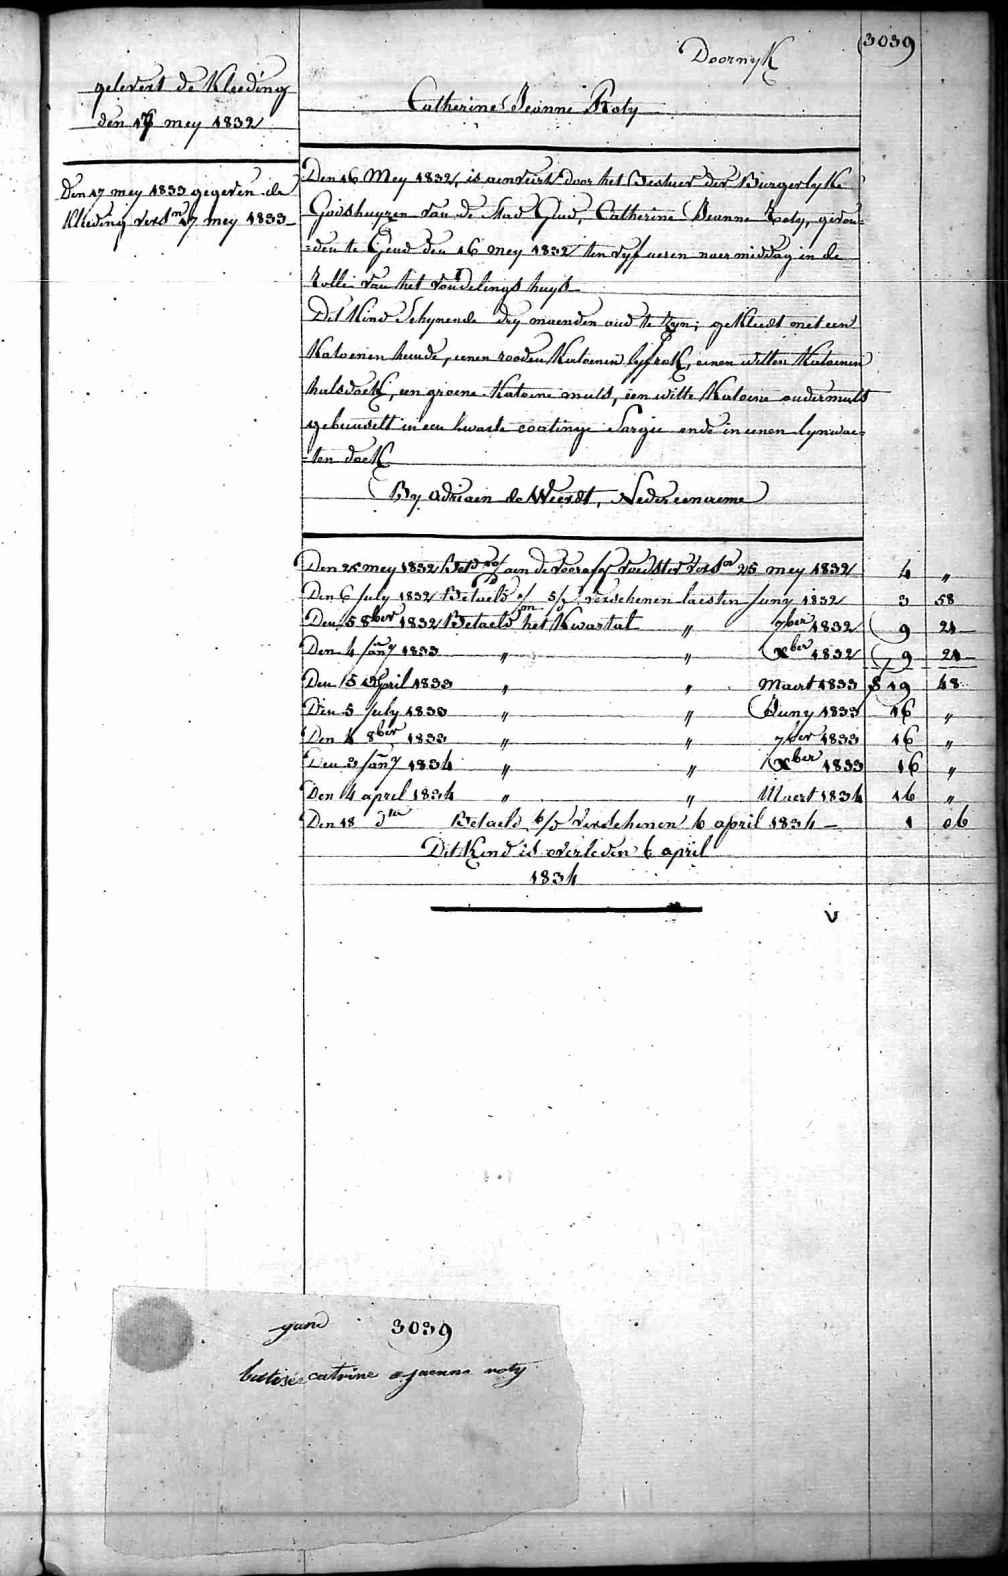 3039
Doornyk
gelevert de Kleeding
den 17 mey 1832
Catherine Jeanne Roty
Den 17 mey 1833 gegeven de
Kleeding versn 17 mey 1833
Den 16 Mey 1832, is aenveirt door het Bestuer der Burgerlyke
Godshuyzen van de stad Gend, Catherine Jeanne Roty, gevon-
-den te Gend den 16 mey 1832 ten vyf ueren naer middag in de
Rolle van het vondelings huys
Dit Kind Schynende dry maenden oud te zyn; gekleedt met een
Katoenen hemde, eenen rooden Katoenen lyfrok, eenen witten Katoenen
halsdoek, een groene Katoene muts, een witte Katoene ondermuts
gebusselt in een zwarte coatinge Sargie ende in eenen lynwae-
-ten doek
By Adriaen de Weerdt, Nedereenaeme
Den 25 mey 1832 aen de voorafg voedster versn 25 mey 1832 4 "
Den 6 July 1832 Betaelt verschenen laesten Juny 1832 3 58
Den 5 8ber 1832 Betaelt het Kwartal " 7ber 1832 9 24
Den 4 Jany 1833 " " Xber 1832 9 24
Den 15 April 1833 " " Maert 1833 19 48
Den 5 July 1833 " " Juny 1833 16 "
Den 8ber 1833 " " 7ber 1833 16 "
Den 3 Jany 1834 " " Xber 1833 16 "
Den 14 april 1834 " " Maert 1834 16 "
Den 18 dto Betaelt 6/d verschenen 6 april 1834 1 06
Dit Kind is overleden 6 april
1834
V
gand 3039
batisée catrine jaenne roty